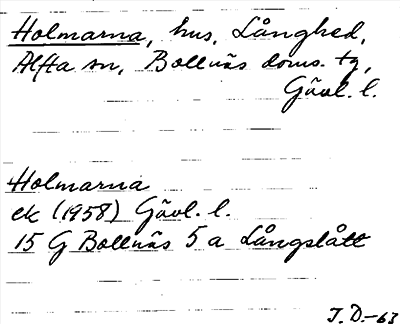 Holmarna, hus, Långhed,
Alfta sn, Bollnäs doms. tg,
Gävl. l.
Holmarna
ek (1958) Gävl. l.
15 G Bollnäs 5 a Långslått
J. D. -63